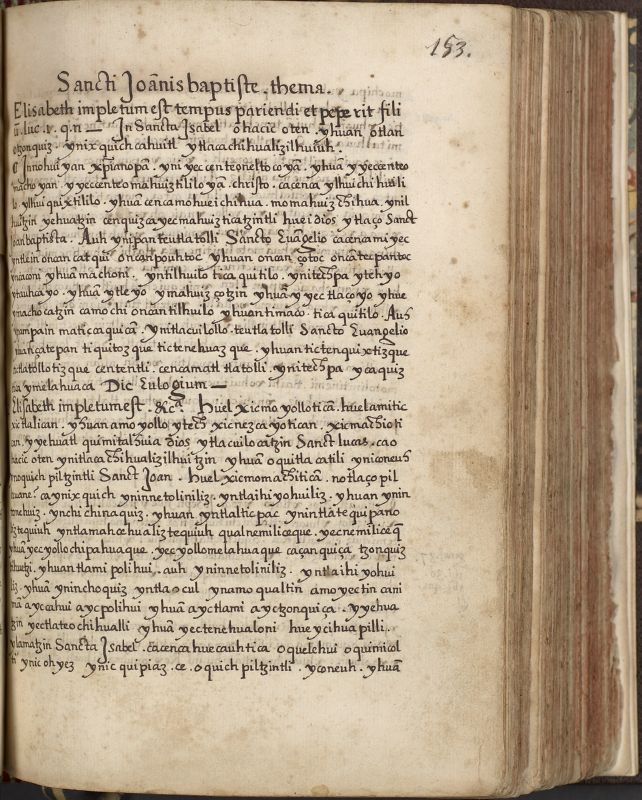 153.
Sancti Joãnis baptiste . thema .
Elisabeth impletum est tempus pariendi et pepe rit fili
ũ . luc . 1 . q . n — In Sancta Isabel ohacic oten . yhuan otlan
otzonquiz . ynix quich cahuitl ytlacachihualizilhuiuh .
Innohuiyan xp̃ianopã . yni yec centeoneltocoyã . yhuã y yeccenteo
macho yan y yeccenteomahuiztililo yã . christo . cacenca ylhuichihuali
lo ylhuiquixtililo . yhuã cenca mohueichihua . momahuizchihua . ynil
huitzin yehuatzin cenquizca yecmahuizticatzintli huei dios ytlaço Sanct
Joan baptista . Auh ynipan teutlatolli Sancto Euãgelio cacenca miyec
yntlein oncan catqui oncan pouhtoc yhuan oncan çotoc oncã tepantoc
ymaconi yhuã machoni . yntilhuilo tica quitilo . ynitechpa yteh yo
ytauhcayo . yhuã ytleyo ymahuiz çotzin yhuã y yectlaçoyo yhue
ymachocatzin camo chi oncan tilhuilo yhuan timaco . tica quitilo . Auh
yompain maticcaquicã . ynitlacuilollo . teutlatolli Sancto Euangelio
quinçatepan ti quitozque tictenehuaz que . yhuan tictenquixtizque
netlatollotizque centetl . cencamatl tlatolli . ynitechpa ycaquiz
tica ymelahuaca Dic Eulogium —
Elisabeth impletum est . &cª . Huel xicmoyolloticã . huelamitic
xictlalican . yhuan amoyollo ytech xicnezcayotican . xicmachioti
can . yyehuatl quimitalhuia dios ytlacuilocãtzin Sanct lucas . cao
hacic oten ynitlacachihualizilhuitzin yhuã oquitlacatili yniconeuh
ynoquich piltzintli Sanct Joan . Huel xicmomachiticã . notlaço pil
huane ? ca ynix quich yninnetoliniliz . yntlaihiyohuiliz . yhuan ynin
tonehuiz . ynchichinaquiz . yhuan yntlalticpac ynintlatequipano
liztequiuh yntlamahcehualiztequiuh qualnemilice que . yecnemiliceq̃
yhuã yecyollochipahuaque . yecyollomelahuaque caçan quiça tzonquiz
tihuetzi . yhuan tlami polihui . auh yninnetoliniliz . yntlaihiyohui
liz . yhuã ynin choquiz yntlaocul ynamo qualtin amo yectin cani
mã aycahui aycpolihui yhuã ayctlami ayctzonquiça . yyehua
tzin yectlateochihualli yhuã yectenehualoni hueycihuapilli .
ylamatzin Sancta Isabel . cacenca huecauhtica oquelehui oquimicol
ti ynic ohyez ynic quipiaz . ce . oquich piltzintli . yconeuh . yhuã